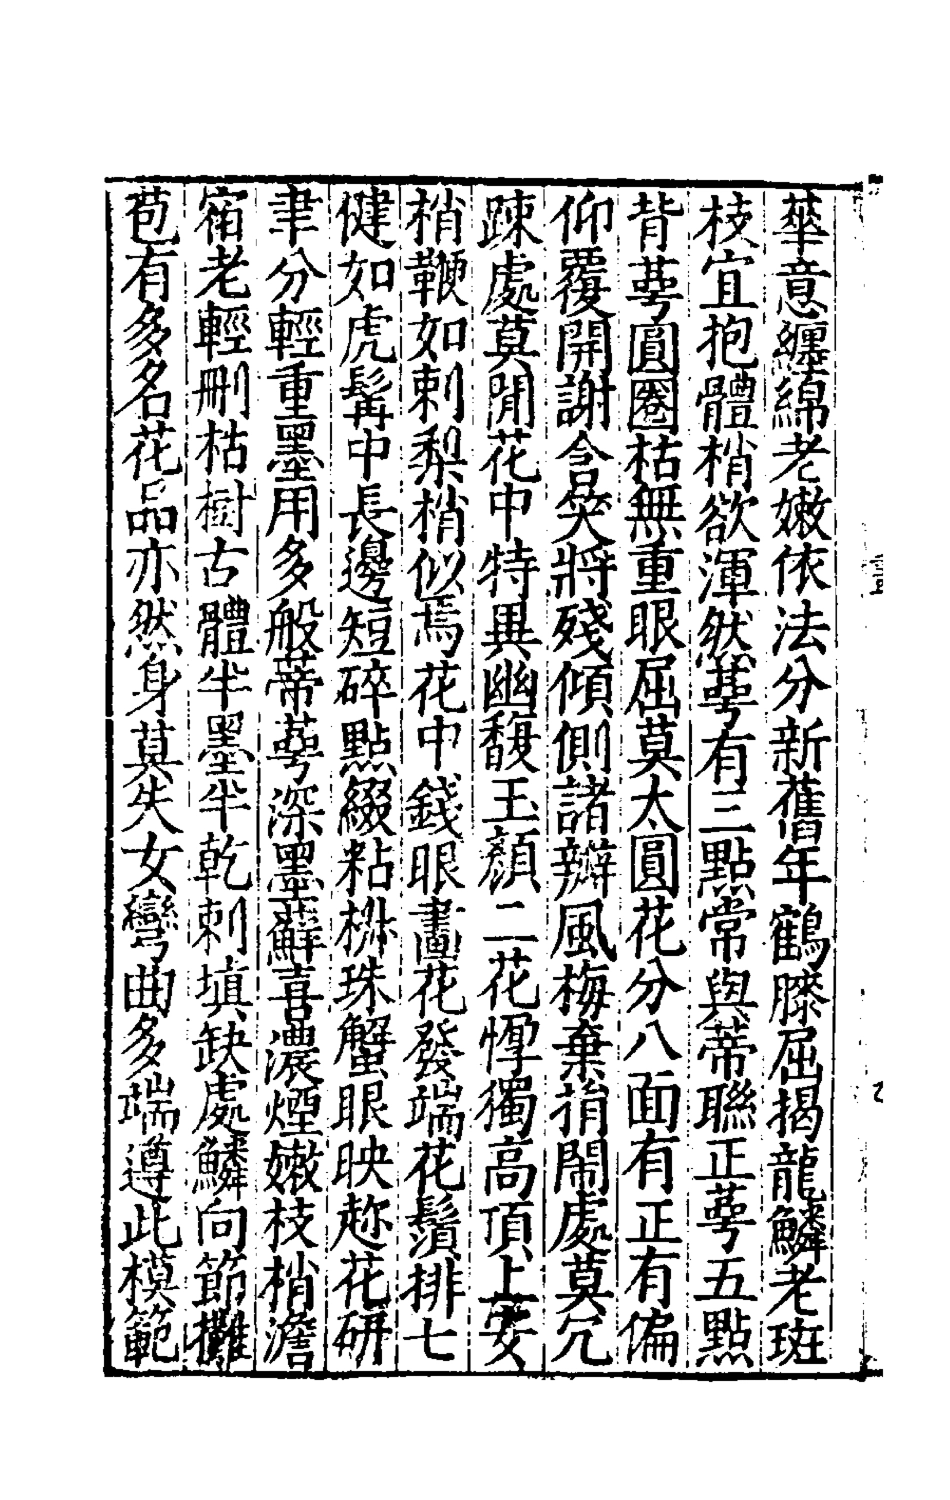 蕐意纏綿老嫩依法分新舊年鶴膝屈揭龍鱗老斑
枝宜抱體梢欲渾然萼有三點常與蒂聯正萼五點
背萼圓圈枯無重眼屈莫太圓花分八面有正有偏
仰覆開謝含笑將殘傾側諸瓣風梅棄捐鬧處莫冗
踈處莫閒花中特異幽馥玉顔二花惸獨高頂上安
梢鞭如刺梨梢似焉花中錢眼畫花發端花鬚排七
健如虎髯中長邊短碎點綴粘椒珠蟹眼映趂花硏
聿分輕重墨用多般蒂萼深墨蘚喜濃煙嫩枝梢澹
宿老輕刪枯樹古體半墨半乾刺填缺處鱗向節攤
苞有多名花品亦然身莫失女彎曲多端遵此模範